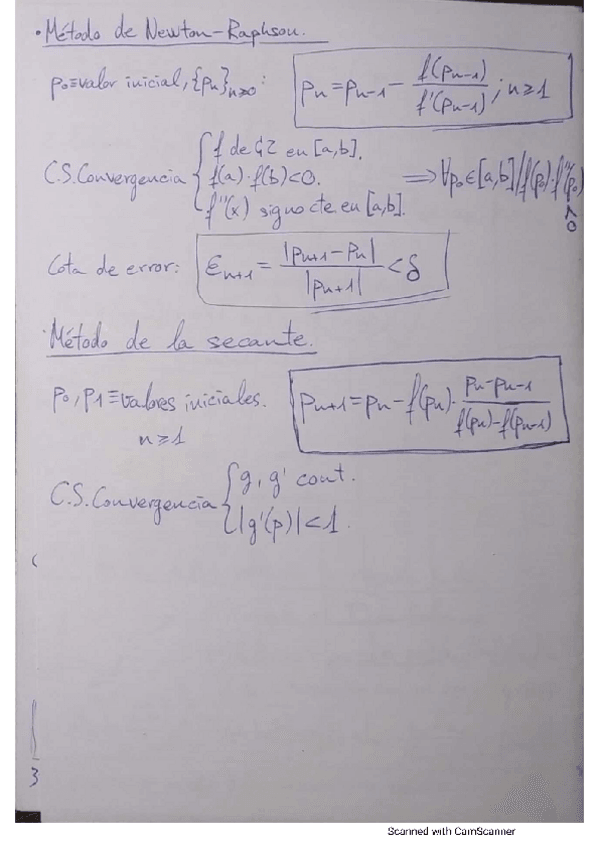 · Método de Newton-Raphson.
p₀≡valor inicial, {pₙ}ₙ≥₀: pₙ = pₙ₋₁ - f(pₙ₋₁)/f'(pₙ₋₁); n≥1
C.S.Convergencia { f de G2 en [a,b].
f(a)·f(b)<0. ⟹ ∀p₀∈[a,b]/f(p₀)·f''(p₀)>0
f''(x) signo cte en [a,b].
Cota de error: Ɛₙ₊₁ = |pₙ₊₁ - pₙ|/|pₙ₊₁| < δ
· Método de la secante.
p₀, p₁≡valores iniciales. pₙ₊₁ = pₙ - f(pₙ)· (pₙ-pₙ₋₁)/(f(pₙ)-f(pₙ₋₁))
n≥1
C.S.Convergencia { g, g' cont.
|g'(p)|<1.
3
Scanned with CamScanner